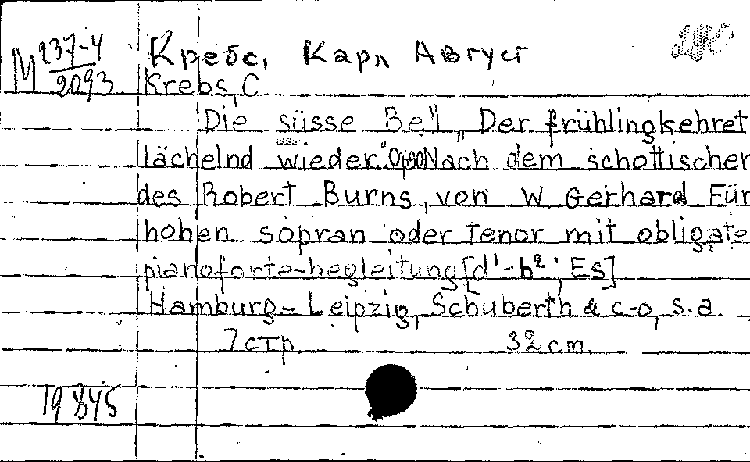 М 237-4
2093
Кребс, Карл Август
Krebs, C.
Die süsse Bell „Der frühling kehret
lächelnd wieder." Op. Nach dem schottischen
des Robert Burns, von W. Gerhard Für
hohen sopran oder tenor mit obligate
pianoforte-begleitung [d¹-b²; Es]
Hamburg - Leipzig, Schuberth & c-o, s.a.
7 стр. 32 cm.
19845